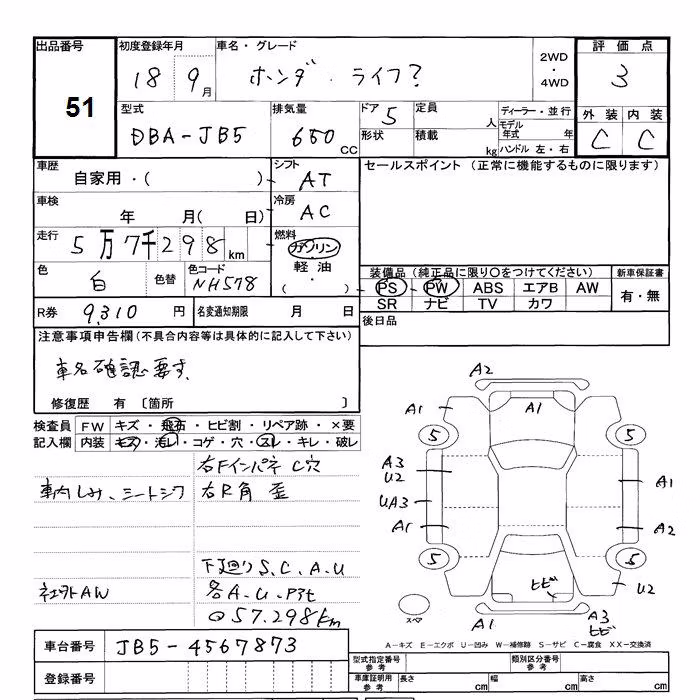 出品番号 初度登録年月 車名・グレード 2WD ・ 4WD 評価点
51 18 9月 ホンダ ・ ライフ? 3
型式 排気量 ドア 5 定員 人 ディーラー・並行 外装 内装
DBA-JB5 660 CC 形状 積載 kg モデル年式 年 C C
ハンドル 左・右
車歴 シフト セールスポイント (正常に機能するものに限ります)
自家用・( ) AT
車検 冷房
年 月( 日) AC
走行 燃料
5万7千298km ガソリン
色 色替 色コード 軽油
白 NH578 ・ ( )
装備品(純正品に限り○をつけてください) 新車保証書
PS PW ABS エアB AW 有・無
SR ナビ TV カワ
R券 9,310 円 名変通知期限 月 日
後日品
注意事項申告欄(不具合内容等は具体的に記入して下さい)
車名確認要す
修復歴 有 〔箇所 〕
検査員 FW キズ・飛石・ヒビ割・リペア跡・×要
記入欄 内装 キズ・汚レ・コゲ・穴・スレ・キレ・破レ
右Fインパネ C穴
車内しみ、シートシワ 右R角 歪
下廻りS.C.A.U
社外AW 各A.U.P3t
◎57.298km
A2
A1 A1
5 5
A3
U2 A1
UA3
A1 A2
5 5
ヒビ U2
スペア A1 A3
ヒビ
A-キズ E-エクボ U-凹み W-補修跡 S-サビ C-腐食 XX-交換済
車台番号 JB5-4567873
型式指定番号 参考 類別区分番号 参考
登録番号
車庫証明用 参考 長さ cm 幅 cm 高さ cm